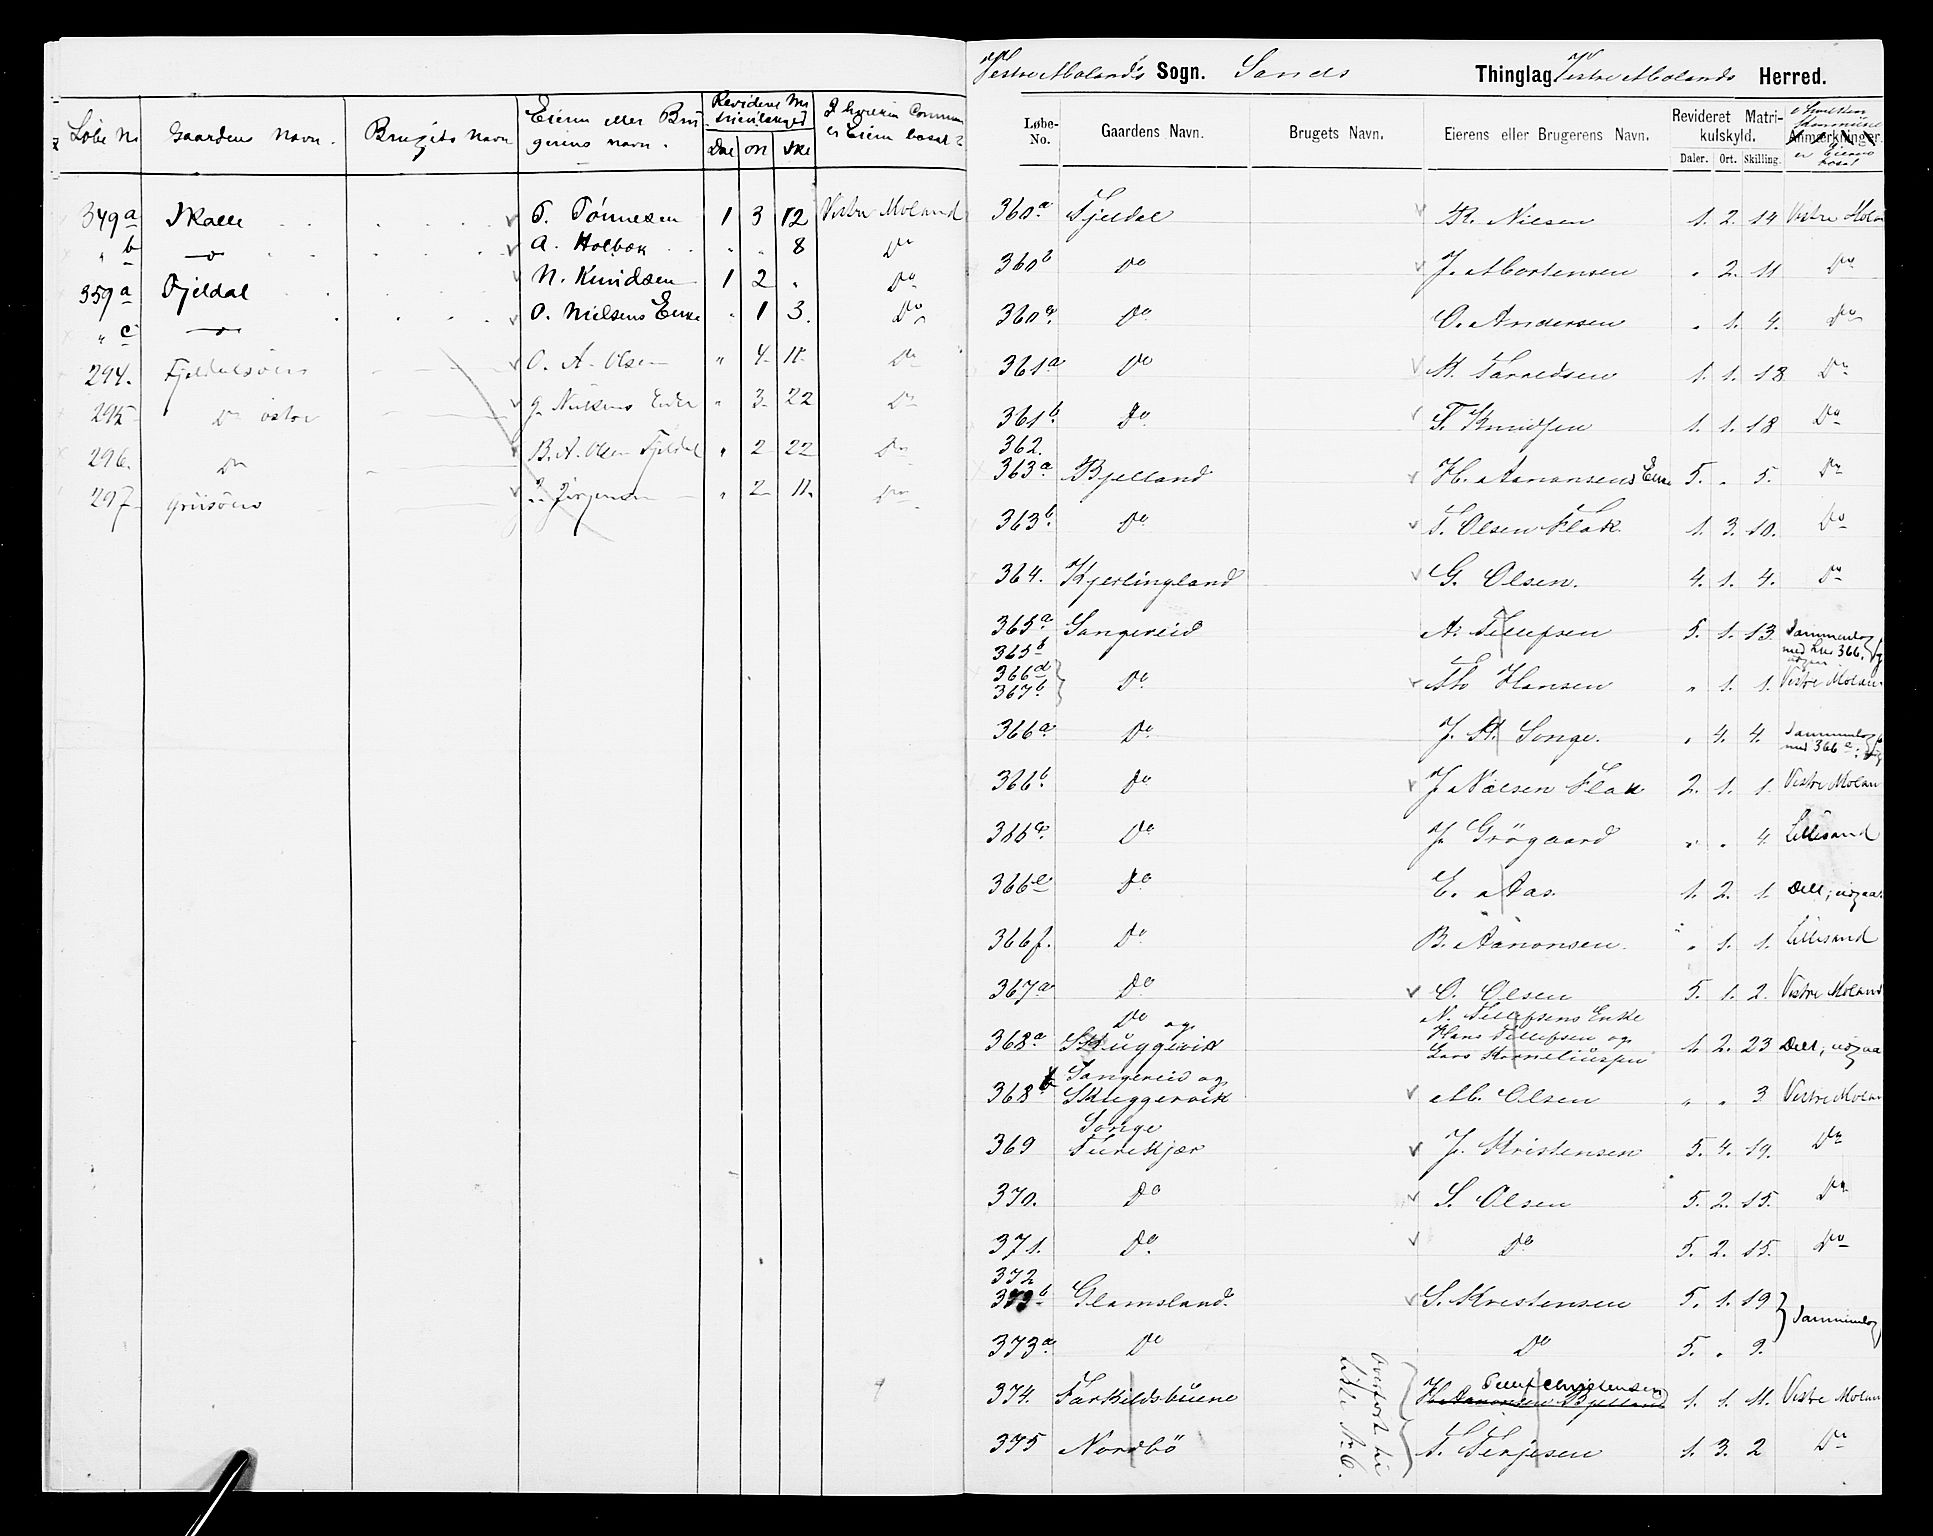 Løbe No Gaardens Navn. Brugets Navn Eierens eller Brugerens navn. Revideret Matrikulskyld Dal ort Ski I hvilken Commune er Eieren bosat?
349a Skalle T. Tønnesen 1 3 12 Vestre Moland
" b — o — A. Holbæk " " 8 Do
359a Fjeldal N. Knudsen 1 2 " Do
" c — o — O. Nielsens Enke " 1 3. Do
294. Fjeldalsøens O. A. Olsen " 4 11. Do
295 Do østre G. Nielsens Enke " 3 22 Do
296. Do B. A. Olsen Fjeldal " 2 22 Do
297 Griisøens Jørgensen " 2 11. Do
Vestre Molands Sogn. Sands Thinglag Vestre Molands Herred.
Løbe-No. Gaardens Navn. Brugets Navn. Eierens eller Brugerens Navn. Revideret Matrikulskyld. Anmærkninger.
Daler. Ort. Skilling.
I hvilken Kommune er Eieren bosat
360a Fjeldal N. Nielsen 1. 2. 14 Vestre Molan
360b Do J. Mortensen " 2. 11 Do
360c Do O. Andersen " 1. 4. Do
361a Do N. Taraldsen 1. 1. 18 Do
361b Do T. Knudsen 1. 1. 18 Do
362.
363a Bjelland H. Aanonsens Enke 5. " 5. Do
363b Do T. Olsen Flak 1. 3. 10. Do
364. Kjerlingland G. Olsen. 4. 1. 4. Do
365a Sangereid A. Tellefsen 5. 1. 13. Sammenlag med Lnr 366. udgaar
365b
366d
367b Do Th. Hansen " 1. 1. Vestre Molan
366a Do J. N. Songe. " 4. 4. Sammenlag med 366
366b Do J. Nielsen Flak 2. 1. 1. Vestre Molan
366c Do J. Grøgaard " " 4. Lillesand
366e Do E. Aas. 1. 2. 1. Delt; udgaa
366f. Do B. Aanonsen. " 1. 1. Lillesand
367a Do O. Olsen 5. 1. 2. Vestre Moland
Do og N. Tellefsens Enke
368a Skuggevik Hans Tellefsen og Lars Korneliussen 1. 2. 23 Delt; udgaa
Sangereid og
368b Skuggervik M. Olsen " " 3 Vestre Molan
Songe
369 Tveitkjær J. Kristensen 5. 4. 19. Do
370. Do S. Olsen 5. 2. 15. Do
371. Do Do 5. 2. 15. Do
372
373b Glamsland. S. Kristensen 5. 1. 19 Sammenlag
373a Do Do 5. " 9.
Tellef Christensen
374. Tarkildsbuene H. Aanonsen Bjelland 1. 1. 11. Vestre Molan
375 Nordbø T. Terjesen 1. 3. 2 Do
Overført til Liste No 6.